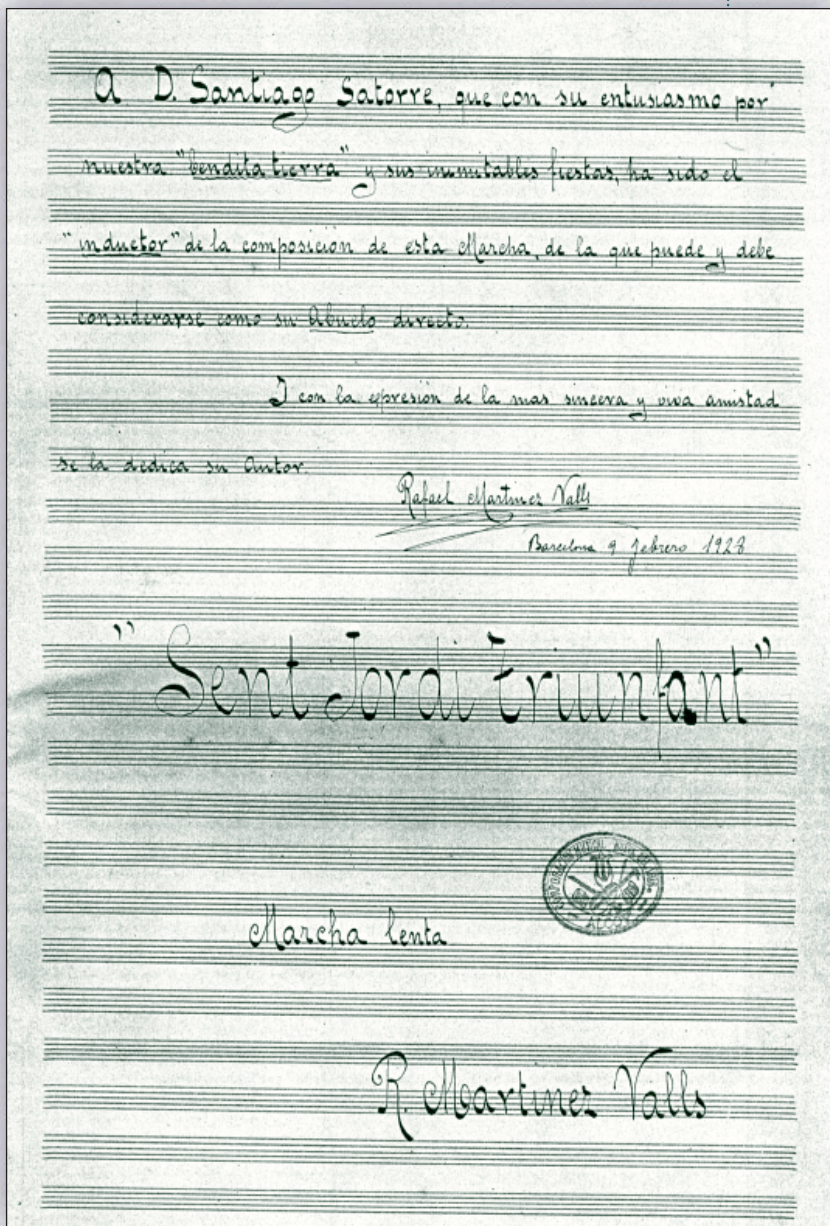 A D. Santiago Satorre, que con su entusiasmo por
nuestra "bendita tierra" y sus inmutables fiestas, ha sido el
"inductor" de la composición de esta Marcha, de la que puede y debe
considerarse como su Abuelo directo.
Y con la expresión de la mas sincera y viva amistad
se la dedica su Autor.
Rafael Martinez Valls
Barcelona 9 febrero 1928
"Sent Jordi triunfant"
Marcha lenta
R. Martinez Valls